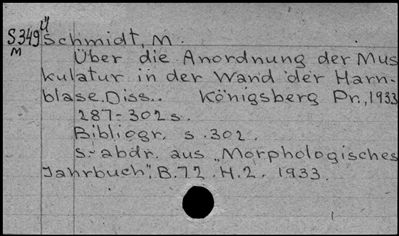 S349ü Schmidt, M.
M
Über die Anordnung der Mus
kulatur in der Wand der Harn-
blase. Diss.. Königsberg Pr., 1933
287-302 s.
Bibliogr. s. 302.
S.-abdr. aus „Morphologisches
Jahrbuch", B.72. H.2. 1933.